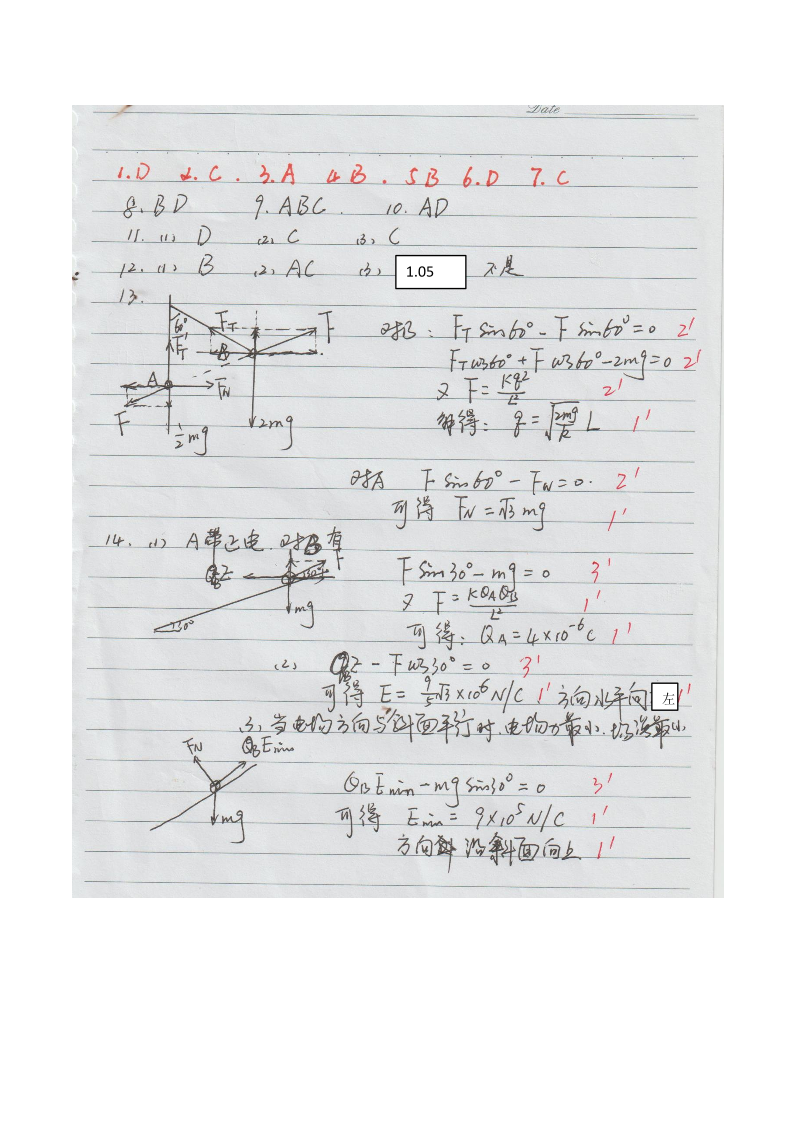 Date
1.D 2.C. 3.A 4 B. 5B 6.D 7.C
8.BD 9.ABC. 10.AD
11.(1) D (2) C (3) C
12.(1) B (2) AC (3) 1.05 不是
13.
60° F_T F
F_T' B
A F_N
F ½mg 2mg
对B: F_T sin60° - F sin60° = 0 2'
F_T cos60° + F cos60° - 2mg = 0 2'
又 F = Kq²/L² 2'
解得: q = √(2mg/k) L 1'
对A F sin60° - F_N = 0. 2'
可得 F_N = √3 mg 1'
14. (1) A带正电. 对B有
F
Q_B E 30°
mg
30°
F sin30° - mg = 0 3'
又 F = KQ_AQ_B/L² 1'
可得: Q_A = 4×10⁻⁶C 1'
(2) Q_B E - F cos30° = 0 3'
可得 E = 9/5 √3 ×10⁶ N/C 1' 方向水平向左 1'
(3) 当电场方向与斜面平行时, 电场力最小, 场强最小
F_N Q_B E min
mg
Q_B E min - mg sin30° = 0 3'
可得 E min = 9×10⁵ N/C 1'
方向 沿斜面向上 1'